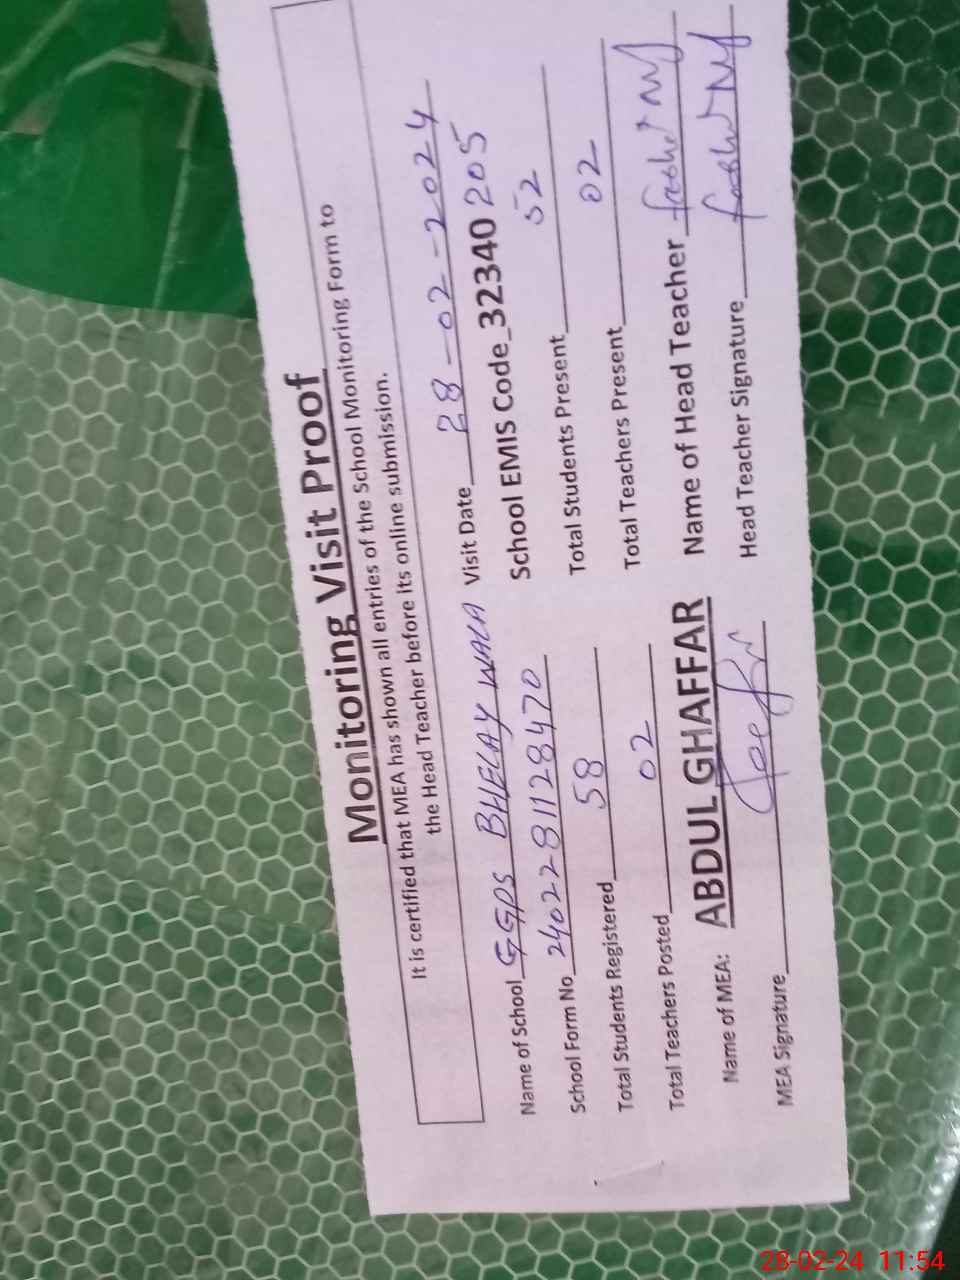 Monitoring Visit Proof
It is certified that MEA has shown all entries of the School Monitoring Form to
the Head Teacher before its online submission.
Name of School GGPS BHELAY WALA Visit Date 28-02-2024
School Form No 240228112 8470 School EMIS Code_32340 205
Total Students Registered 58 Total Students Present 52
Total Teachers Posted 02 Total Teachers Present 02
Name of MEA: ABDUL GHAFFAR Name of Head Teacher
MEA Signature Head Teacher Signature
28-02-24 11:54